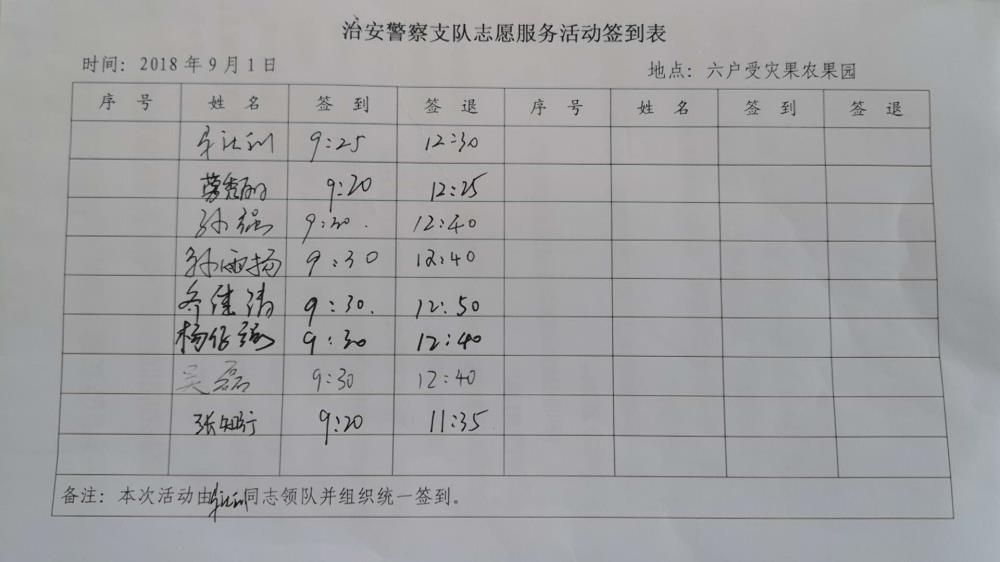 治安警察支队志愿服务活动签到表
时间：2018年9月1日 地点：六户受灾果农果园
序号 姓名 签到 签退 序号 姓名 签到 签退
9:25 12:30
9:20 12:25
孙强 9:30. 12:40
孙雨扬 9:30 12:40
9:30. 12:50
9:30 12:40
吴磊 9:30 12:40
张知行 9:20 11:35
备注：本次活动由 同志领队并组织统一签到。